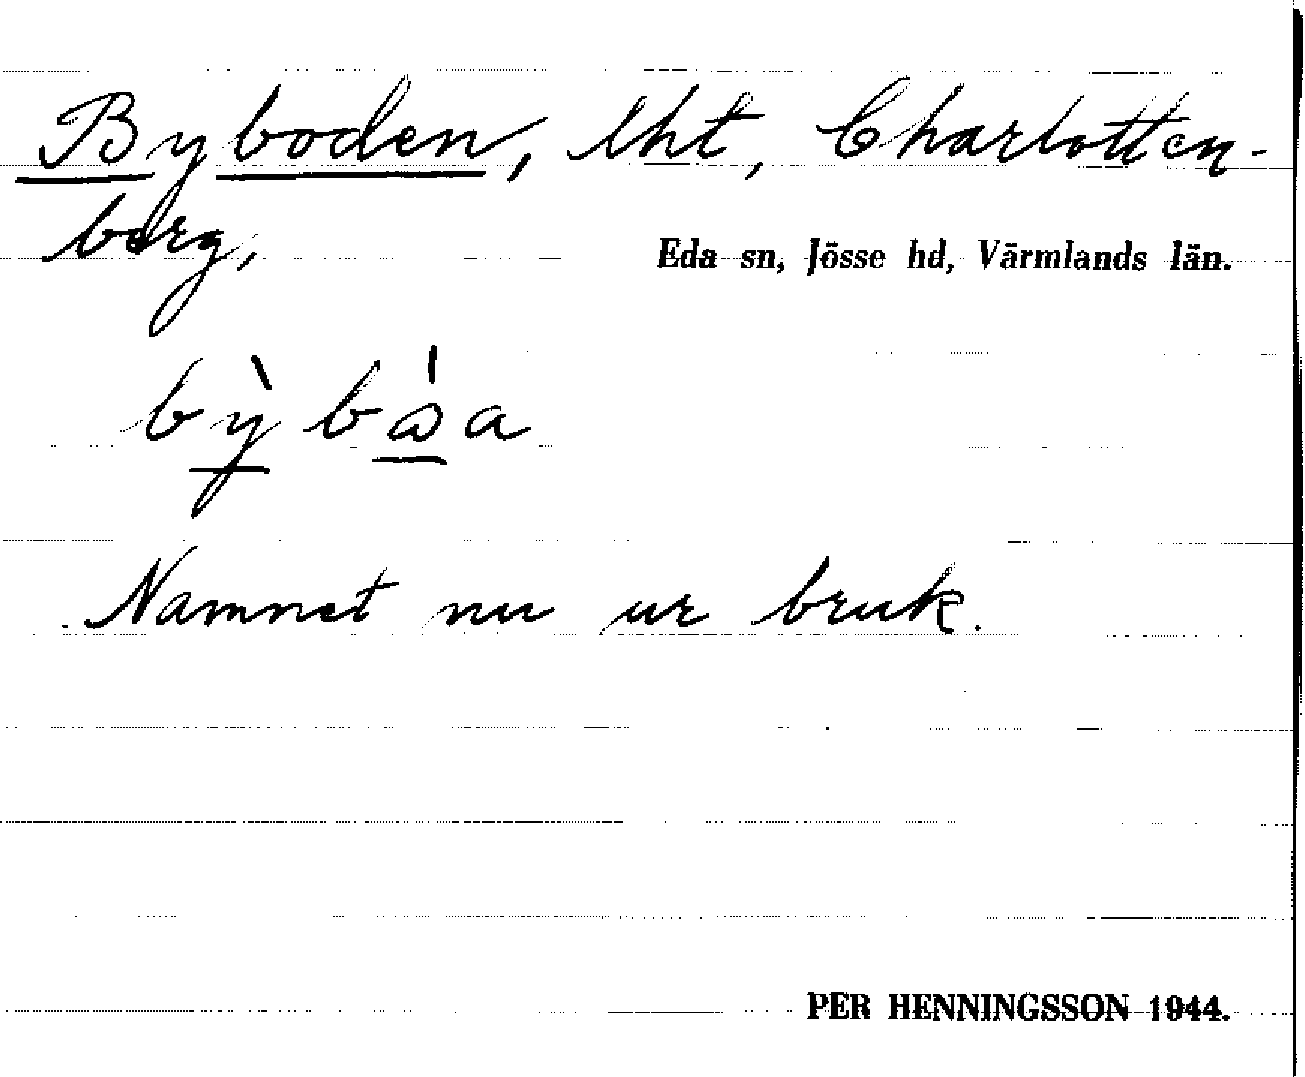 Byboden, lht, Charlotten-
berg,
Eda sn, Jösse hd, Värmlands län.
bỳbώa
Namnet nu ur bruk.
PER HENNINGSSON 1944.